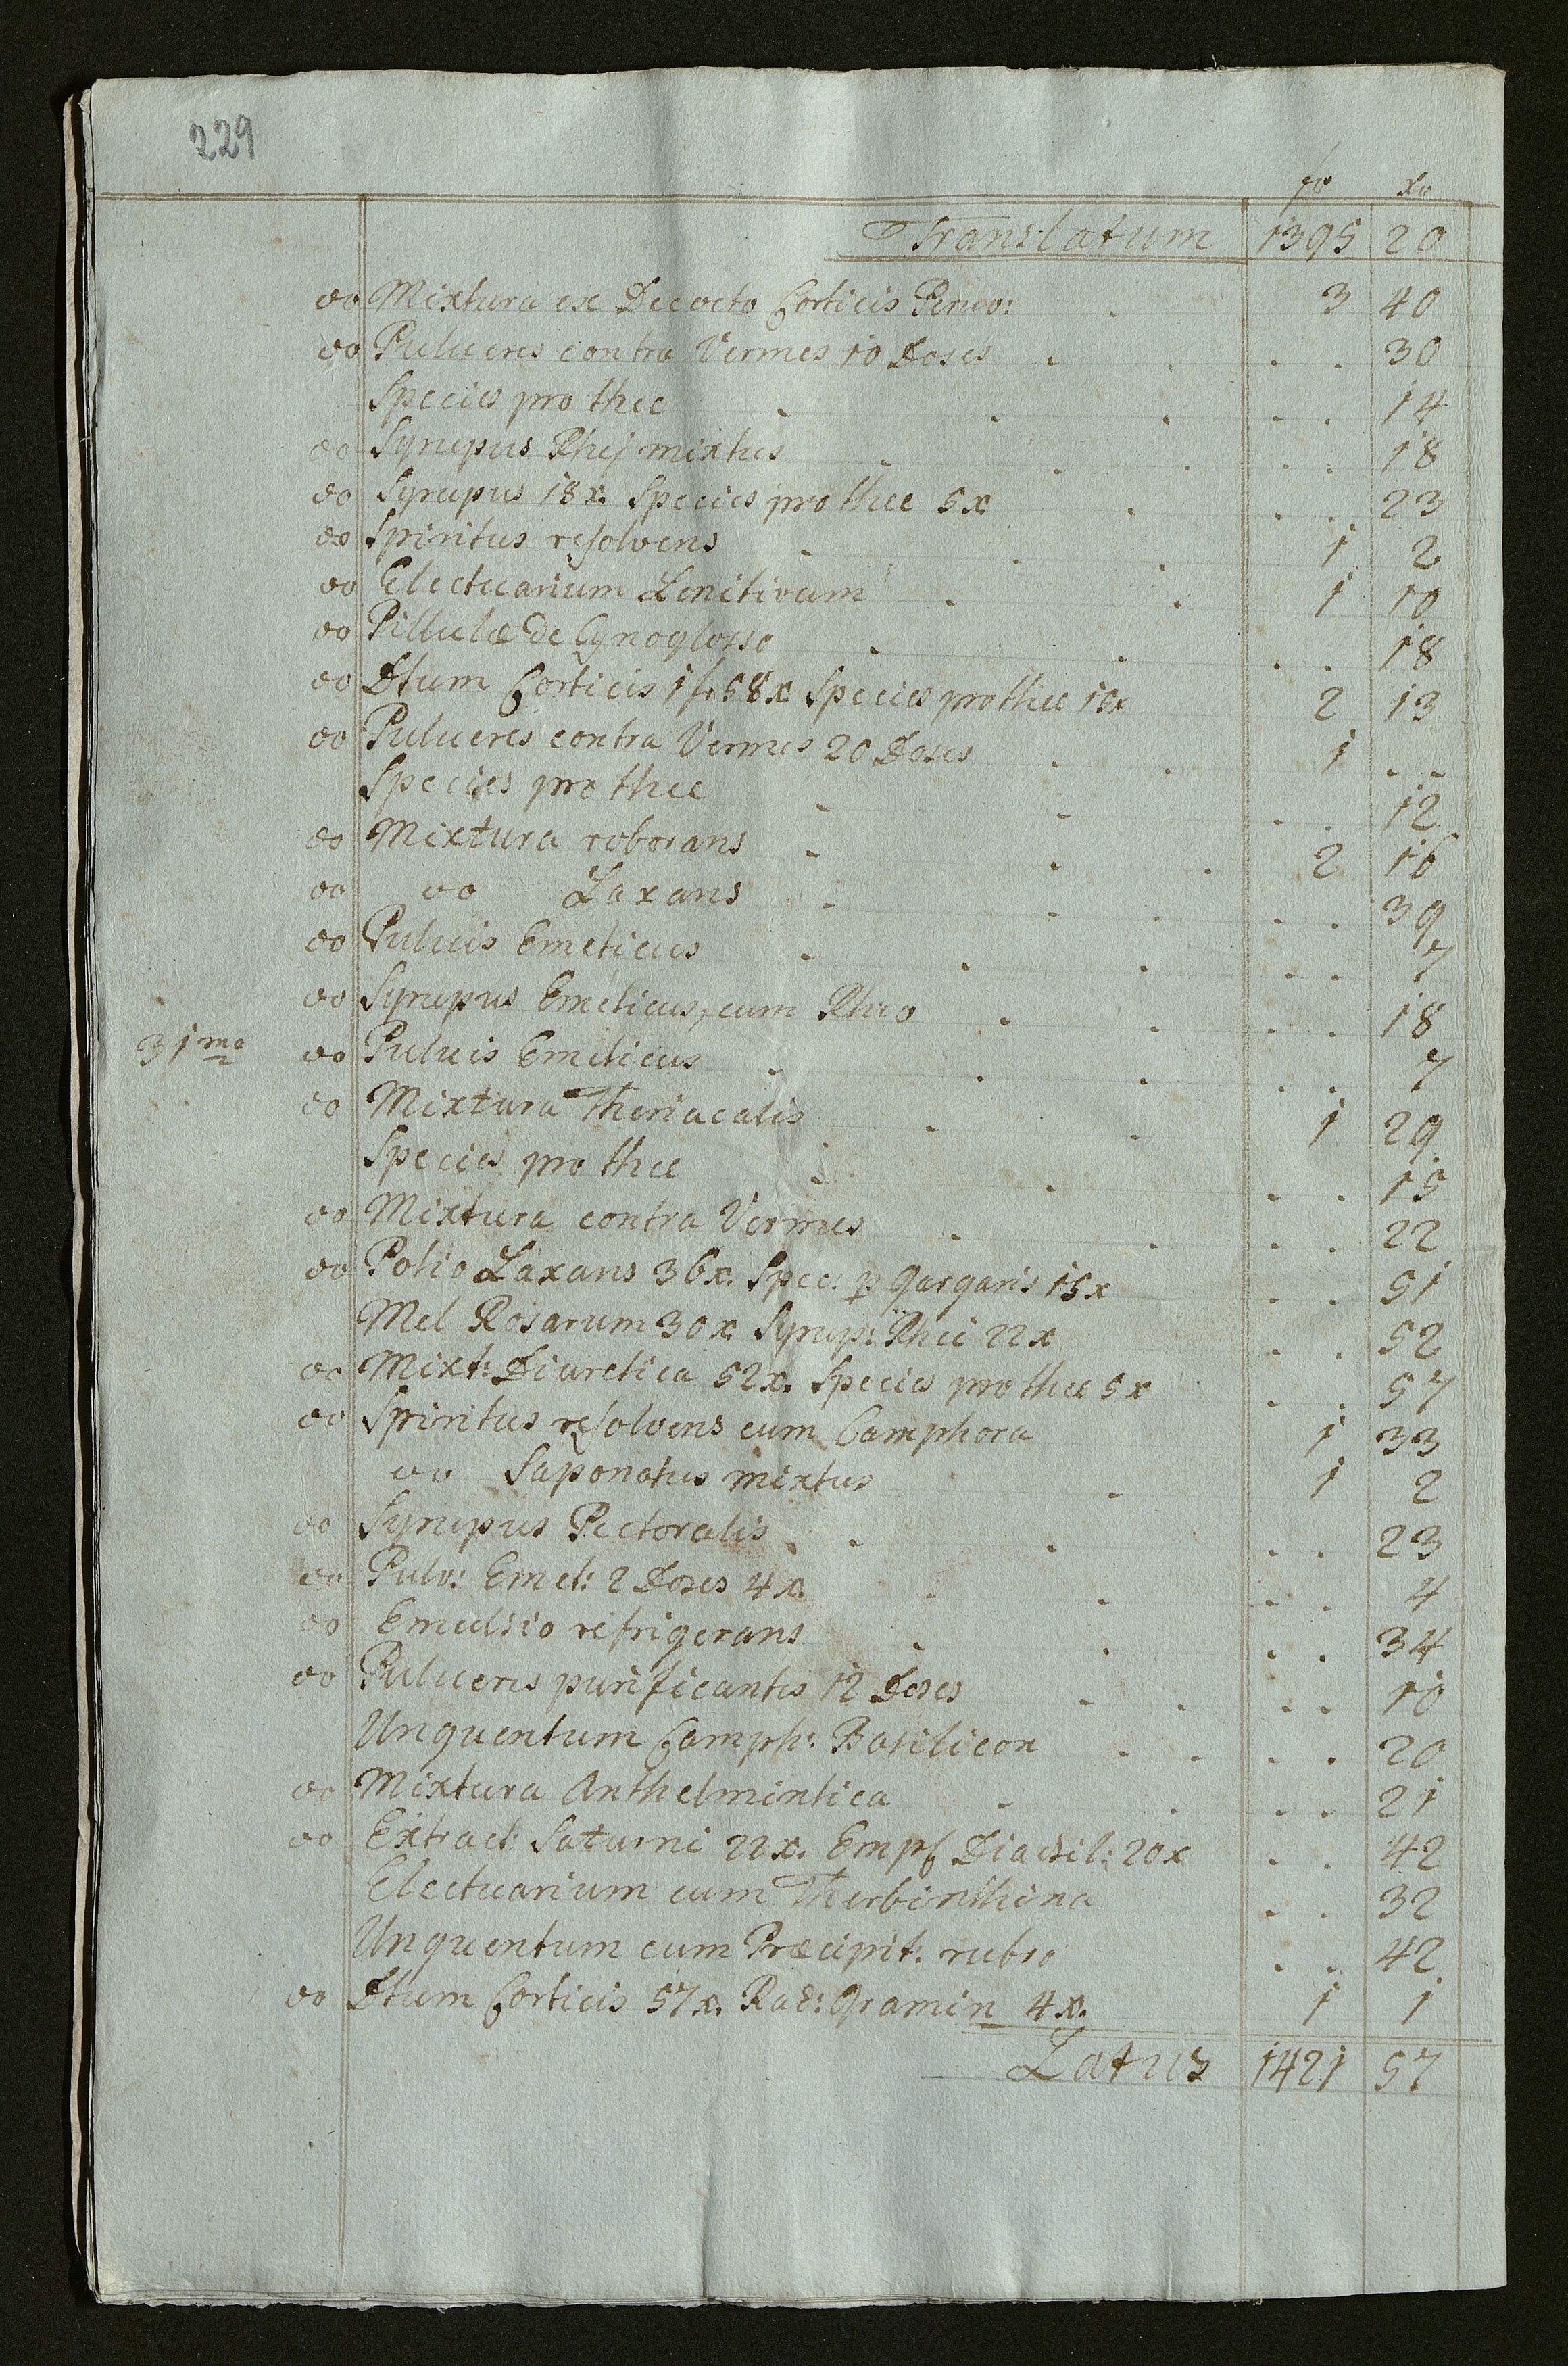 229
fr xr
Translatum 1395 20
do Mixtura ex Decocto Corticis Peruv: . 3 40
do Pulueres contra Vermes 10 Doses . . . . 30
Species pro thee . . . . . 14
do Syrupus Rhej mixtus . . . . . 18
do Syrupus 18x. Species pro thee 5x . . . 23
do Spiritus resolvens . . . 1 2
do Electuarium Lenitivum . . 1 10
do Pillulæ de Cynoglosso . . . . 18
do Dtum Corticis 1f 58x Species pro thee 15x 2 13
do Pulueres contra Vermes 20 Doses . . 1 . .
Species pro thee . . . . 12
do Mixtura roborans . . . 2 16
do do Laxans . . . . . 39
do Puluis Emeticus . . . . . 7
do Syrupus Emeticus, cum Rheo . . . . 18
31mo do Puluis Emeticus . . . . . 7
do Mixtura Theriacalis . . 1 29
Species pro thee . . . . 15
do Mixtura contra Vermes . . . . 22
do Potio Laxans 36x. Spec: p Gargaris 15x . . 51
Mel Rosarum 30x. Syrup: Rhei 22x . . 52
do Mixt: Diuretica 52x. Species pro thee 5x . . 57
do Spiritus resolvens cum Camphora 1 33
do Saponatus mixtus . 1 2
do Syrupus Pectoralis . . . . . 23
do Pulv: Emet: 2 Doses 4x. . . . . 4
do Emulsio refrigerans . . . . 34
do Pulueres purificantes 12 Doses . . . . 10
Unguentum Camph: Basilicon . . . . 20
do Mixtura Anthelmintica . . . . 21
do Extract: Saturni 22x. Empl Diachil: 20x . . 42
Electuarium cum Therbinthina . . 32
Unguentum cum Præcipit: rubro . . 42
do Dtum Corticis 57x. Rad: Gramin 4x. 1 1
Latus 1421 57